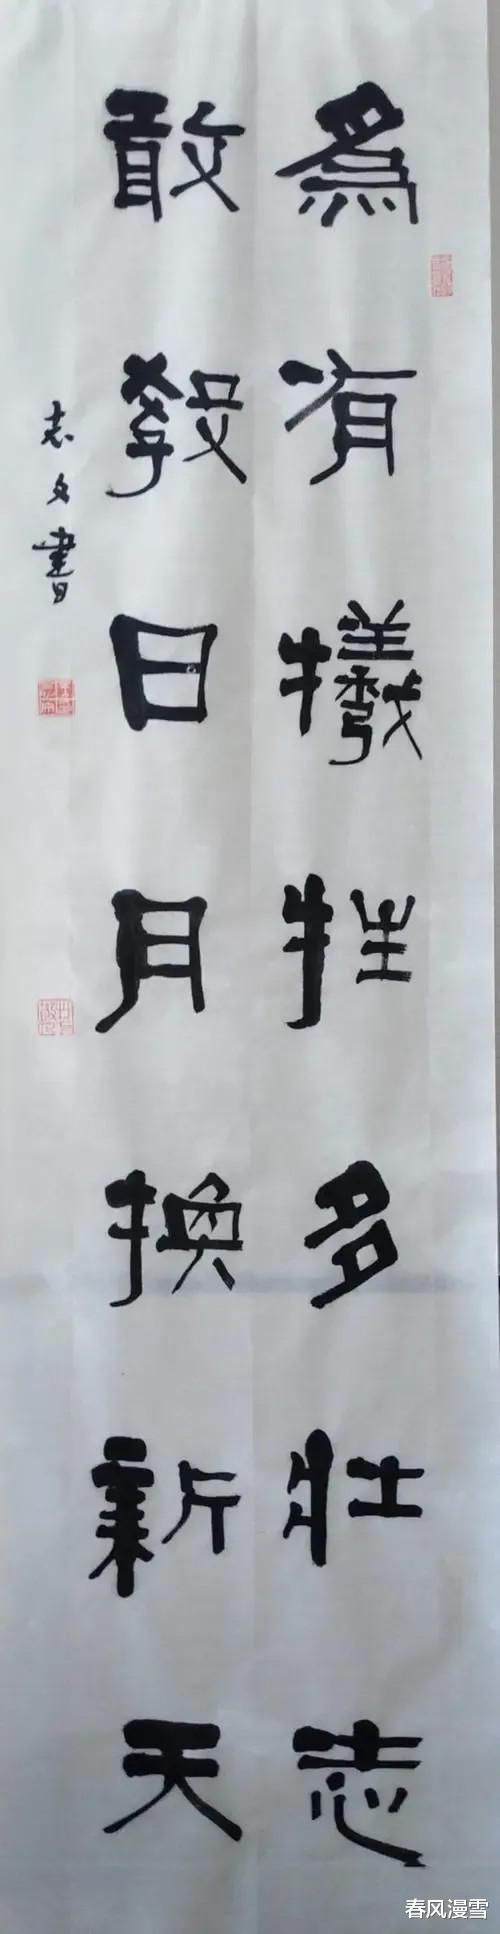 為有犧牲多壯志
敢教日月換新天
志文書
春风漫雪